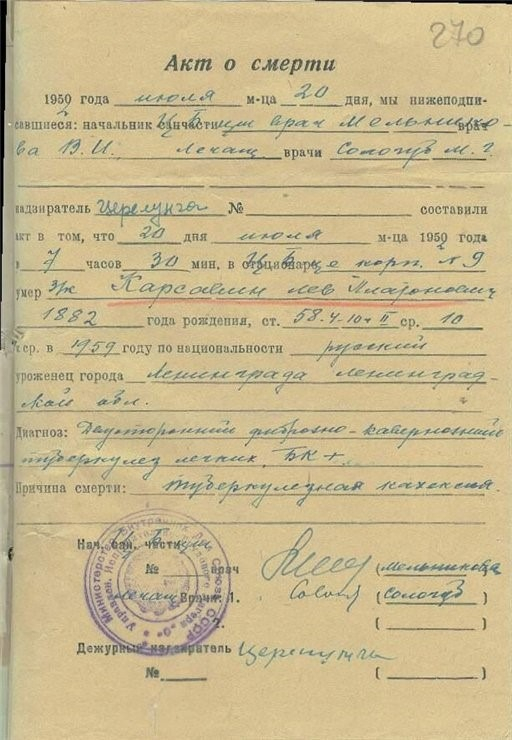 270
Акт о смерти
1950 года июля м-ца 20 дня, мы нижеподпи-
савшиеся: начальник санчасти ЦБ врач Мельнико-
ва В.И. лечащ. врачи Сологуб М.Г.
надзиратель № составили
акт в том, что 20 дня июля м-ца 1950 года
в 7 часов 30 мин. в стационаре корп. № 9
умер з/к Карсавин Лев Платонович
1882 года рождения, ст. 58.4-10 ч II ср. 10
к.ср. в 1959 году по национальности русский
уроженец города Ленинграда Ленинград-
ской обл.
Диагноз: Двусторонний фиброзно-кавернозный
туберкулез легких, БК+
Причина смерти: туберкулезная кахексия.
Министерство Внутренних Дел Союза ССР
Нач. сан. части
№ врач (Мельникова)
лечащ Врачи: 1. (Сологуб)
2. ( )
Дежурный надзиратель
№ ( )